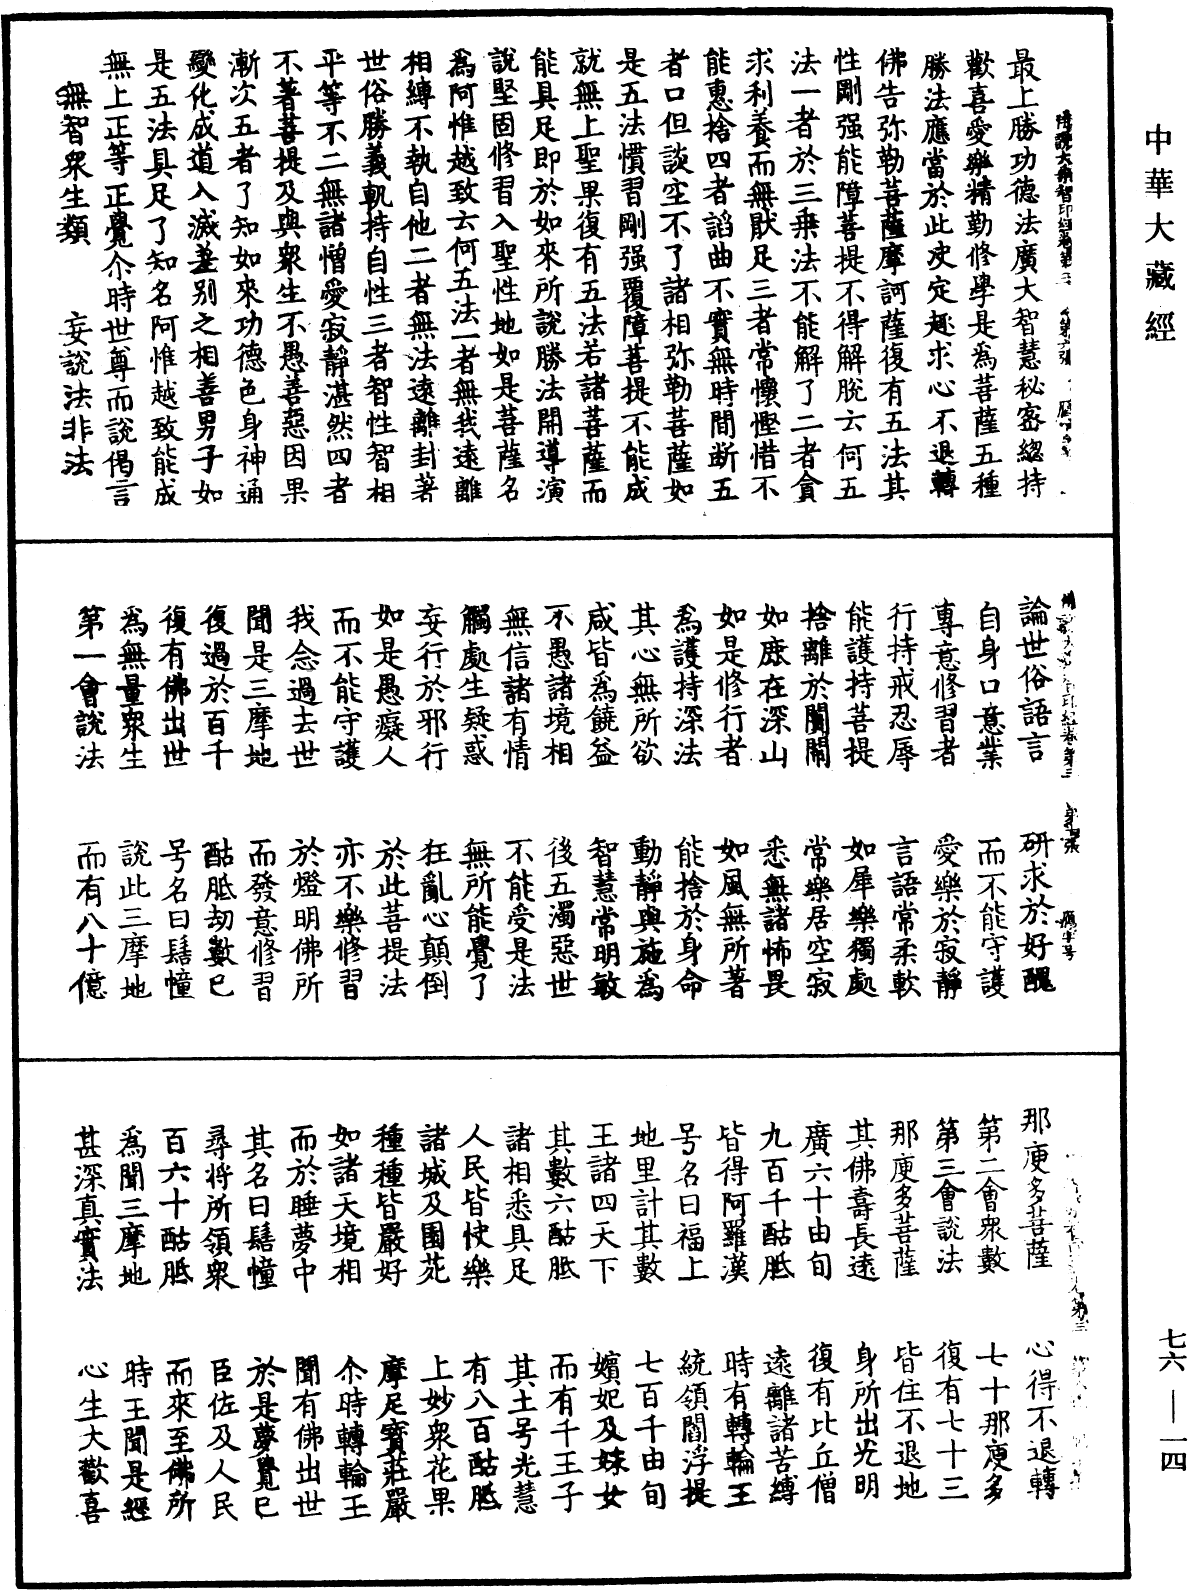 中華大藏經
最上勝功德法廣大智慧秘密緫持
歡喜愛樂精勤修學是為菩薩五種
勝法應當於此决定趣求心不退轉
佛告弥勒菩薩摩訶薩復有五法其
性剛强能障菩提不得解脫云何五
法一者於三乘法不能解了二者貪
求利養而無猒足三者常懷慳惜不
能惠捨四者諂曲不實無時間断五
者口但談空不了諸相弥勒菩薩如
是五法慣習剛强覆障菩提不能成
就無上聖果復有五法若諸菩薩而
能具足即於如來所說勝法開導演
說堅固修習入聖性地如是菩薩名
為阿惟越致云何五法一者無我遠離
相縛不執自他二者無法遠離封著
世俗勝義軌持自性三者智性智相
平等不二無諸憎愛寂靜湛然四者
不著菩提及與衆生不愚善惡因果
漸次五者了知如來功德色身神通
變化成道入滅差別之相善男子如
是五法具足了知名阿惟越致能成
無上正等正覺尒時世尊而說偈言
無智衆生類　妄說法非法
論世俗語言　研求於好醜
自身口意業　而不能守護
專意修習者　愛樂於寂靜
行持戒忍辱　言語常柔軟
能護持菩提　如犀樂獨處
捨離於闤閙　常樂居空寂
如鹿在深山　悉無諸怖畏
如是修行者　如風無所著
為護持深法　能捨於身命
其心無所欲　動靜與施為
咸皆為饒益　智慧常明敏
不愚諸境相　後五濁惡世
無信諸有情　不能受是法
觸處生疑惑　無所能覺了
妄行於邪行　狂亂心顛倒
如是愚癡人　於此菩提法
而不能守護　亦不樂修習
我念過去世　於燈明佛所
聞是三摩地　而發意修習
復過於百千　酤胝劫數已
復有佛出世　号名曰髻幢
為無量衆生　說此三摩地
第一會說法　而有八十億
那庾多菩薩　心得不退轉
第二會衆數　七十那庾多
第三會說法　復有七十三
那庾多菩薩　皆住不退地
其佛壽長遠　身所出光明
廣六十由旬　復有比丘僧
九百千酤胝　遠離諸苦縛
皆得阿羅漢　時有轉輪王
号名曰福上　統領閻浮提
地里計其數　七百千由旬
王諸四天下　嬪妃及婇女
其數六酤胝　而有千王子
諸相悉具足　其土号光慧
人民皆快樂　有八百酤胝
諸城及園苑　上妙衆花果
種種皆嚴好　摩尼寶莊嚴
如諸天境相　尒時轉輪王
而於睡夢中　聞有佛出世
其名曰髻幢　於是夢覺已
尋將所領衆　臣佐及人民
百六十酤胝　而來至佛所
為聞三摩地　時王聞是經
甚深真實法　心生大歡喜
七六—一四